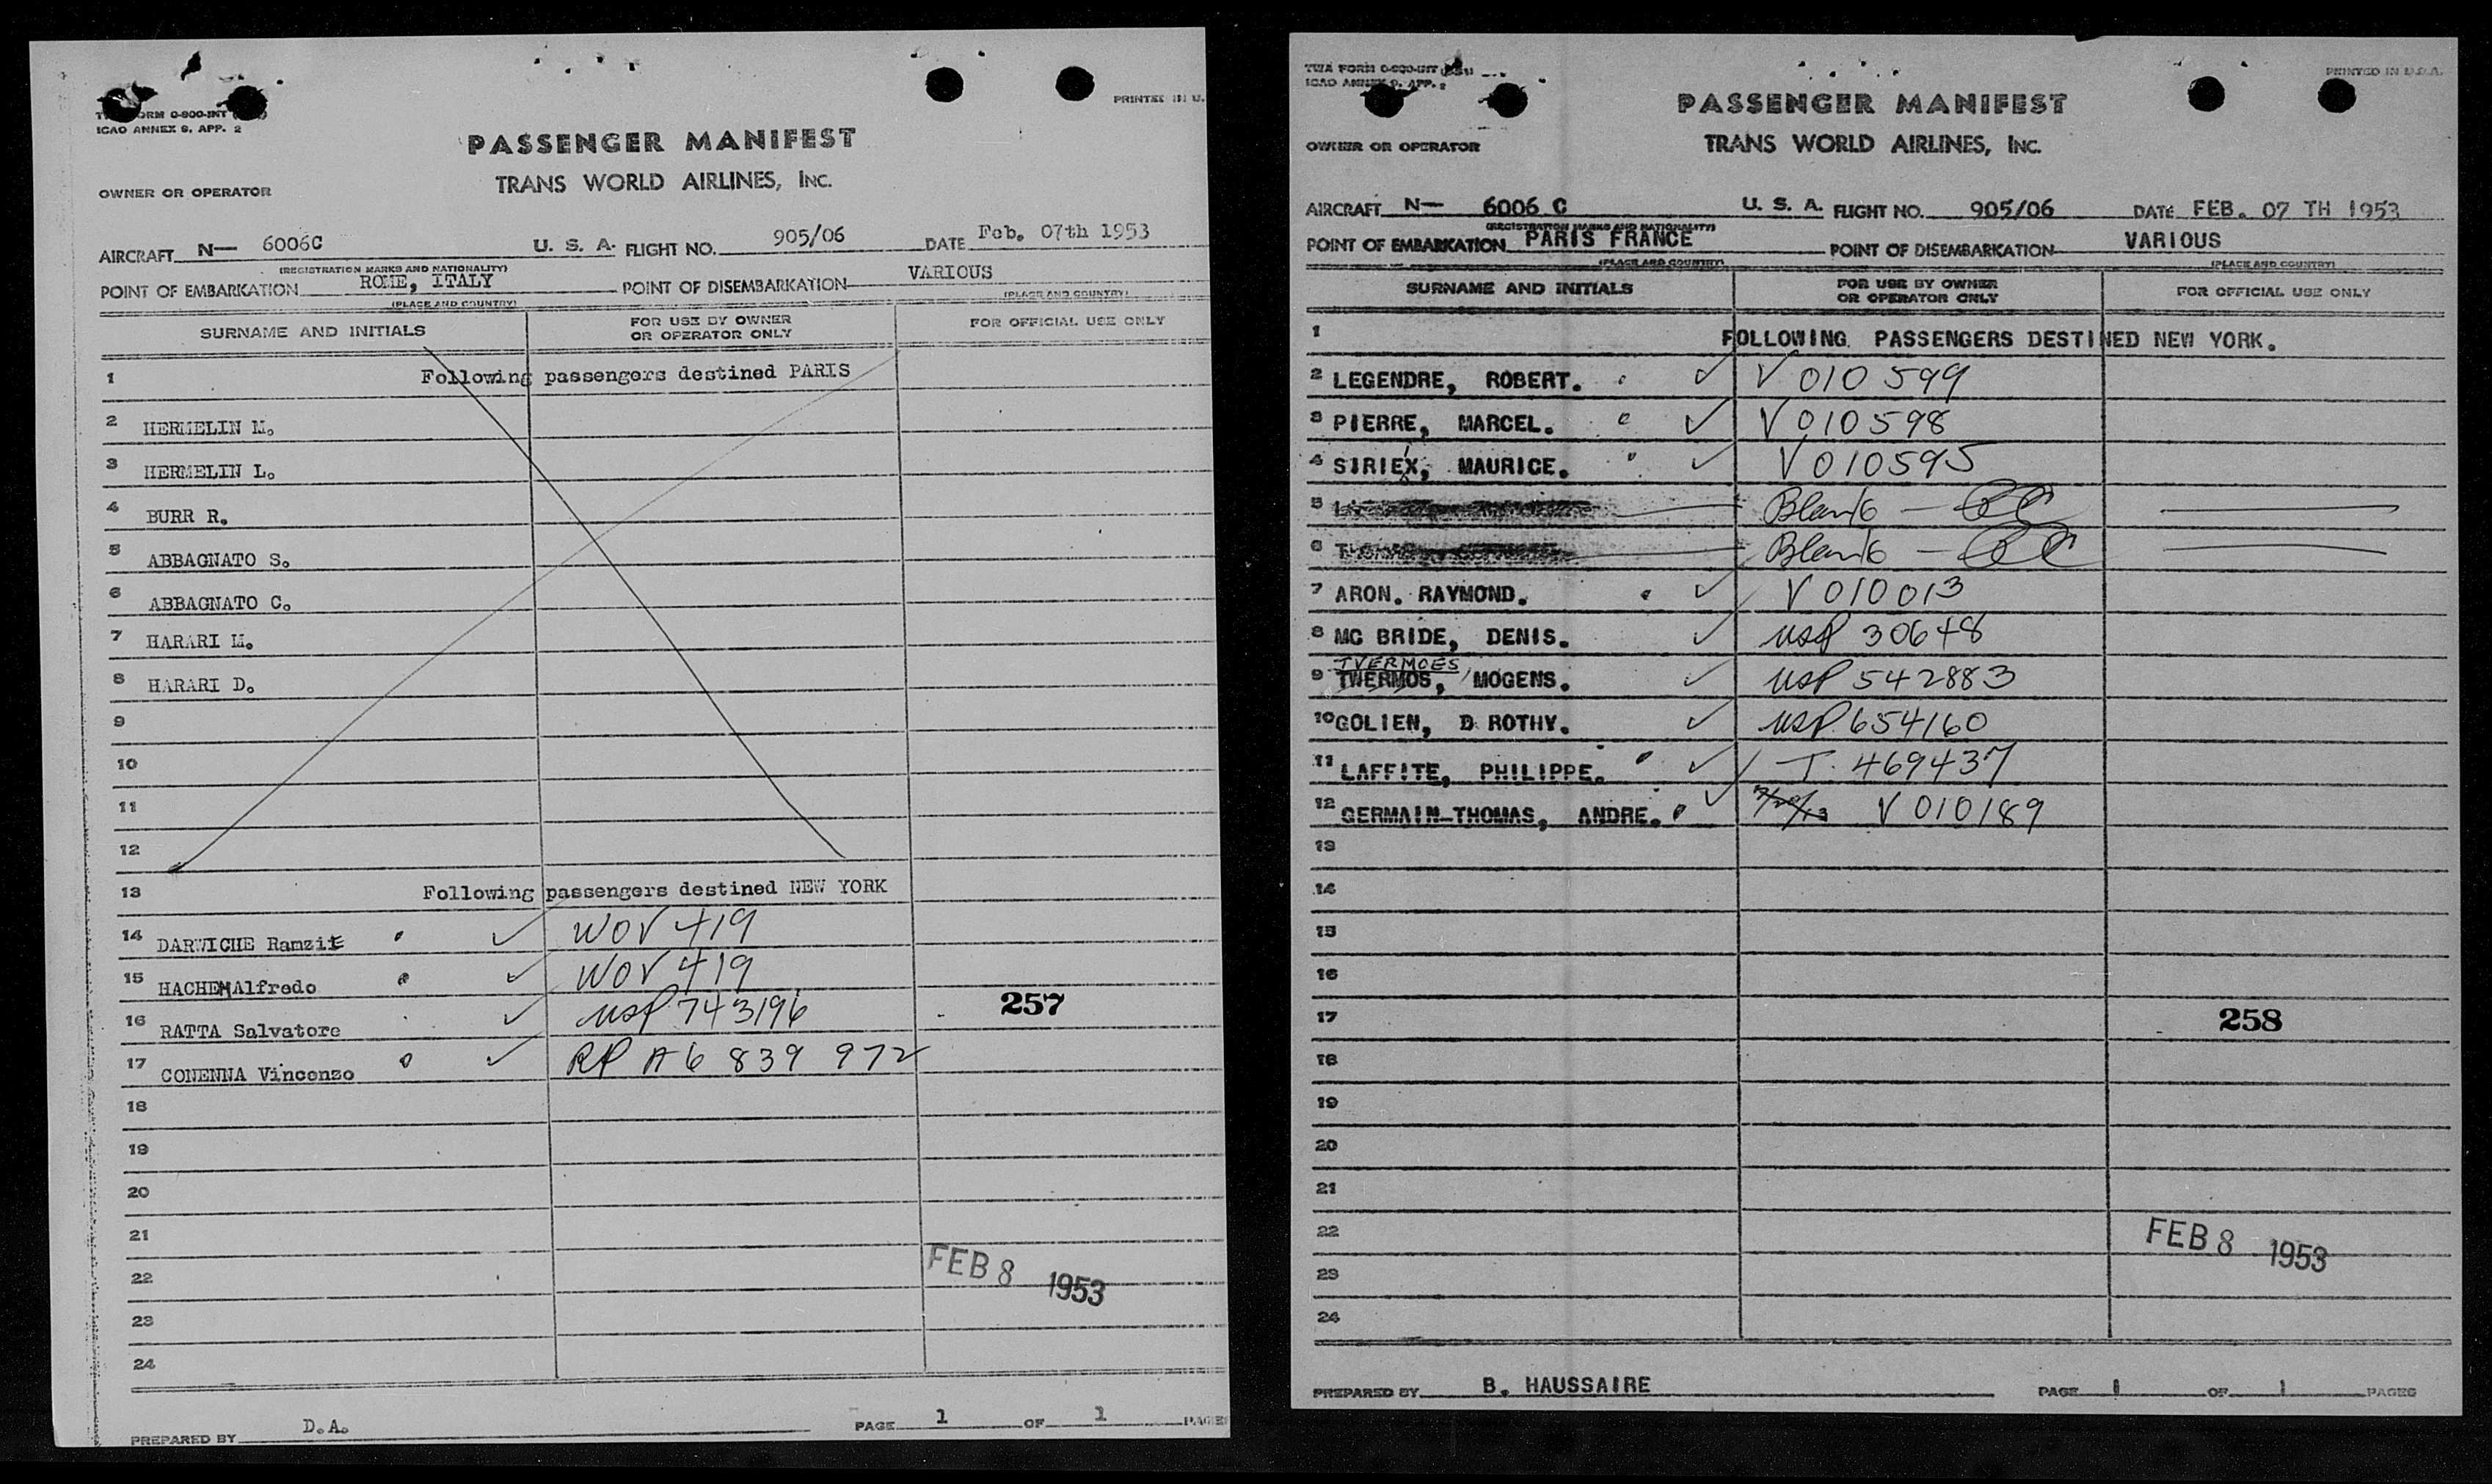 ICAO ANNEX 9, APP. 2
PRINTED IN U.
PASSENGER MANIFEST
TRANS WORLD AIRLINES, INC.
OWNER OR OPERATOR
AIRCRAFT N— 6006C U. S. A. FLIGHT NO. 905/06 DATE Feb. 07th 1953
(REGISTRATION MARKS AND NATIONALITY)
POINT OF EMBARKATION ROME, ITALY POINT OF DISEMBARKATION VARIOUS
(PLACE AND COUNTRY) (PLACE AND COUNTRY)
SURNAME AND INITIALS FOR USE BY OWNER OR OPERATOR ONLY FOR OFFICIAL USE ONLY
1 Following passengers destined PARIS
2 HERMELIN M.
3 HERMELIN L.
4 BURR R.
5 ABBAGNATO S.
6 ABBAGNATO C.
7 HARARI M.
8 HARARI D.
9
10
11
12
13 Following passengers destined NEW YORK
14 DARWICHE Ramzi ✓ WOV 419
15 HACHEM Alfredo ✓ WOV 419
16 RATTA Salvatore ✓ USP 743196 257
17 CONENNA Vincenzo ✓ RP A6 839 972
18
19
20
21
22 FEB 8 1953
23
24
PREPARED BY D.A. PAGE 1 OF 1 PAGES
TWA FORM 0-800-INT
ICAO ANNEX 9, APP. 2
PRINTED IN U.S.A.
PASSENGER MANIFEST
TRANS WORLD AIRLINES, INC.
OWNER OR OPERATOR
AIRCRAFT N— 6006 C U. S. A. FLIGHT NO. 905/06 DATE FEB. 07 TH 1953
(REGISTRATION MARKS AND NATIONALITY)
POINT OF EMBARKATION PARIS FRANCE POINT OF DISEMBARKATION VARIOUS
(PLACE AND COUNTRY) (PLACE AND COUNTRY)
SURNAME AND INITIALS FOR USE BY OWNER OR OPERATOR ONLY FOR OFFICIAL USE ONLY
1 FOLLOWING PASSENGERS DESTINED NEW YORK.
2 LEGENDRE, ROBERT. ✓ V 010599
3 PIERRE, MARCEL. ✓ V 010598
4 SIRIEX, MAURICE. ✓ V 010595
5 Blank —
6 Blank —
7 ARON. RAYMOND. ✓ V 010013
8 MC BRIDE, DENIS. ✓ USP 30648
TVERMOES
9 TWERMOS, MOGENS. ✓ USP 542883
10 GOLIEN, D ROTHY. ✓ USP 654160
11 LAFFITE, PHILIPPE. ✓ T. 469437
12 GERMAIN-THOMAS, ANDRE. ✓ V 010189
13
14
15
16
17 258
18
19
20
21
22 FEB 8 1953
23
24
PREPARED BY B. HAUSSAIRE PAGE 1 OF 1 PAGES